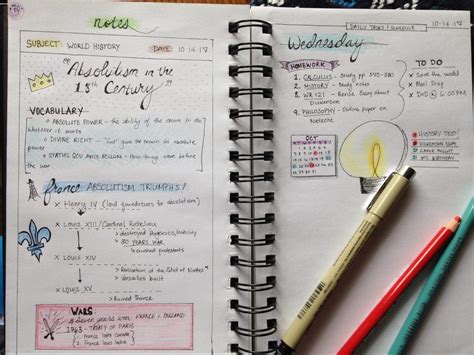 notes
SUBJECT: WORLD HISTORY
DATE: 10·14·17
"Absolutism in the
18th Century"
VOCABULARY
ABSOLUTE POWER - the ability of the crown to do
whatever it wants
DIVINE RIGHT - "God" gave the crown its absolute
power
STATUS QUO ANTE BELLUM - How things were before
the war
France ABSOLUTISM TRIUMPHS!
Henry IV (laid foundations for absolutism)
Louis XIII / Cardinal Richelieu
destroyed Huguenots/nobility
30 YEARS WAR
crushed protestants
LOUIS XIV
Revocation of the Edict of Nantes
Versailles built
LOUIS XV
Ruined France
WARS:
Seven years war: FRANCE v ENGLAND
1763 - TREATY OF PARIS
1. France loses Canada
2. France loses India
DAILY TASKS + SCHEDULE
10·14·17
Wednesday
HOMEWORK
1. CALCULUS - Study pp.
2. HISTORY - Study notes
3. WR 121 - Revise Essay about
Dickinson
4. PHILOSOPHY - Outline paper on
Nietzsche
TO DO
Save the world
Meal Prep
DnD @ 6:00 PM
OCT
HISTORY TEST!
DICKINSON ESSAY
MY BIRTHDAY